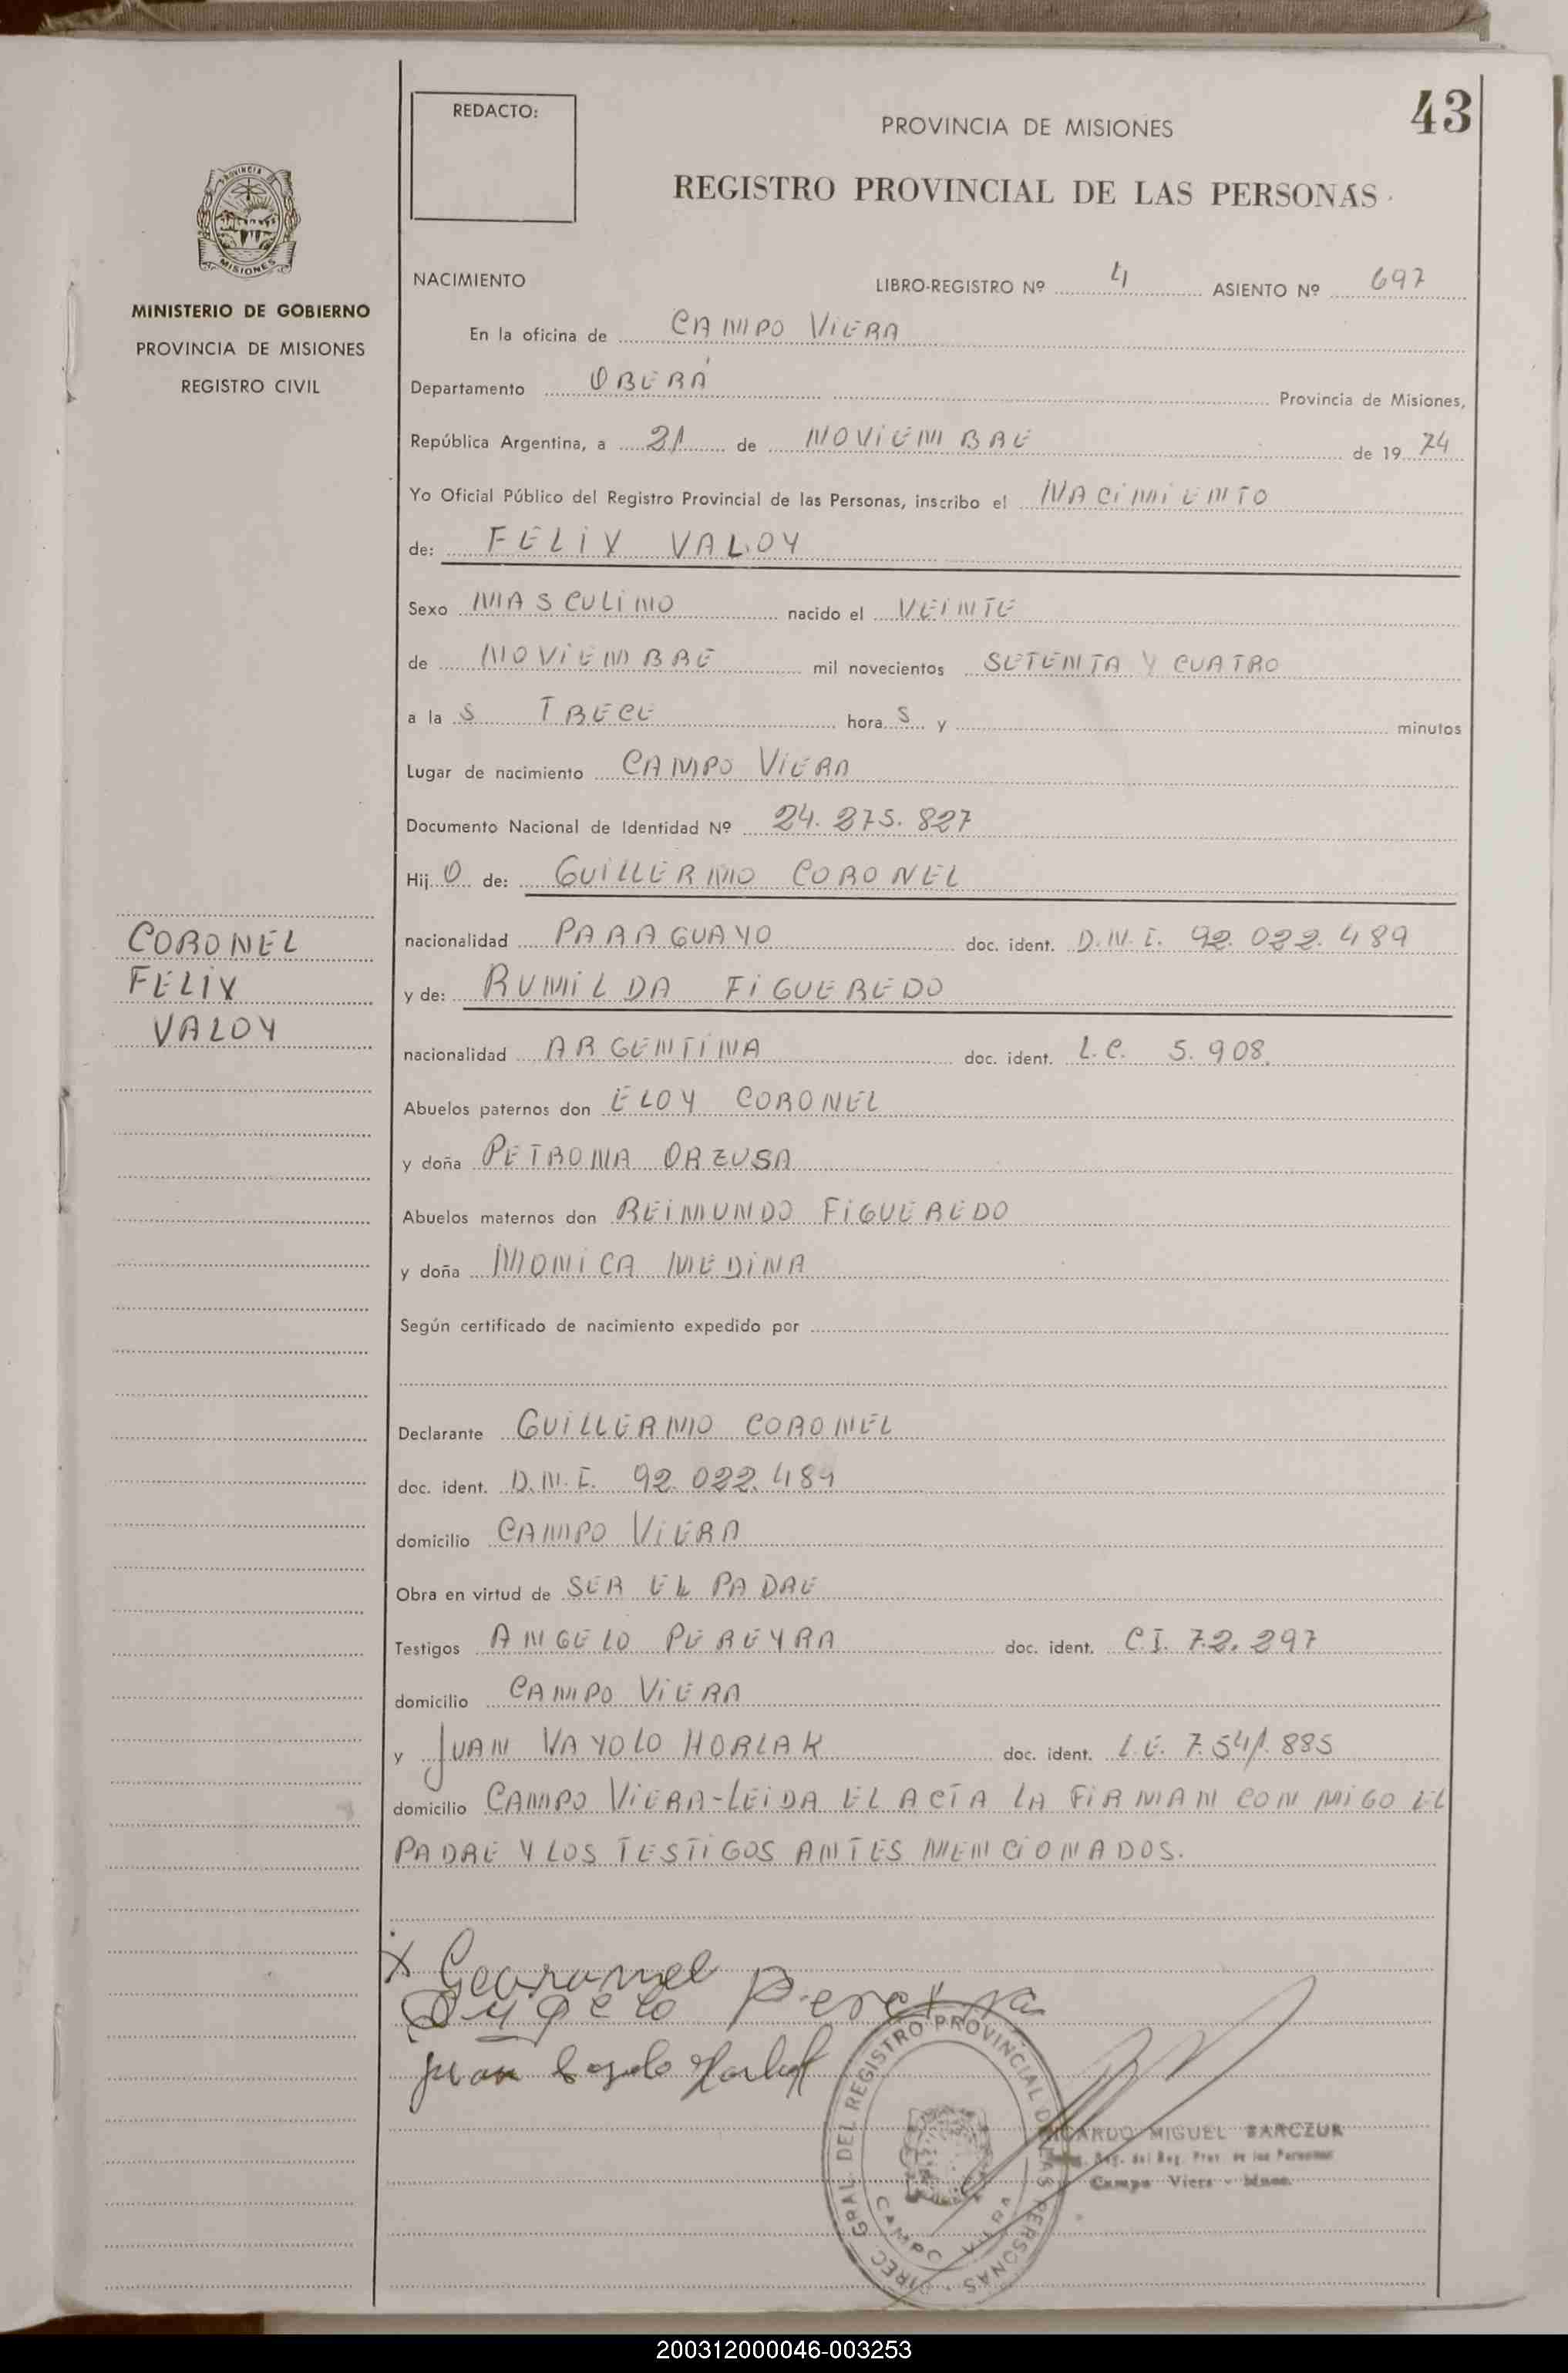 43
REDACTO:
PROVINCIA DE MISIONES
REGISTRO PROVINCIAL DE LAS PERSONAS
PROVINCIA DE
MISIONES
MINISTERIO DE GOBIERNO
PROVINCIA DE MISIONES
REGISTRO CIVIL
NACIMIENTO LIBRO-REGISTRO Nº 4 ASIENTO Nº 697
En la oficina de CAMPO VIERA
Departamento OBERÁ Provincia de Misiones,
República Argentina, a 21 de NOVIEMBRE de 19 74
Yo Oficial Público del Registro Provincial de las Personas, inscribo el NACIMIENTO
de: FELIX VALOY
Sexo MASCULINO nacido el VEINTE
de NOVIEMBRE mil novecientos SETENTA Y CUATRO
a la S TRECE hora S y minutos
Lugar de nacimiento CAMPO VIERA
Documento Nacional de Identidad Nº 24.275.827
Hij O de: GUILLERMO CORONEL
nacionalidad PARAGUAYO doc. ident. D.N.I. 92.022.489
y de: RUMILDA FIGUEREDO
nacionalidad ARGENTINA doc. ident. L.C. 5.908.
Abuelos paternos don ELOY CORONEL
y doña PETRONA ORZUSA
Abuelos maternos don REIMUNDO FIGUEREDO
y doña MONICA MEDINA
Según certificado de nacimiento expedido por
CORONEL
FELIX
VALOY
Declarante GUILLERMO CORONEL
doc. ident. D.N.I. 92.022.489
domicilio CAMPO VIERA
Obra en virtud de SER EL PADRE
Testigos ANGELO PEREYRA doc. ident. C.I. 72.297
domicilio CAMPO VIERA
y JUAN VAYOLO HORLAK doc. ident. L.E. 7.541.885
domicilio CAMPO VIERA-LEIDA EL ACTA LA FIRMAN CON MIGO EL
PADRE Y LOS TESTIGOS ANTES MENCIONADOS.
X Gcoronel
Angelo Pereyra
juan
DIREC. GRAL. DEL REGISTRO PROVINCIAL DE LAS PERSONAS
CAMPO VIERA
RICARDO MIGUEL BARCZUK
Reg. del Reg. Prov. de las Personas
Campo Viera - Mnes.
200312000046-003253